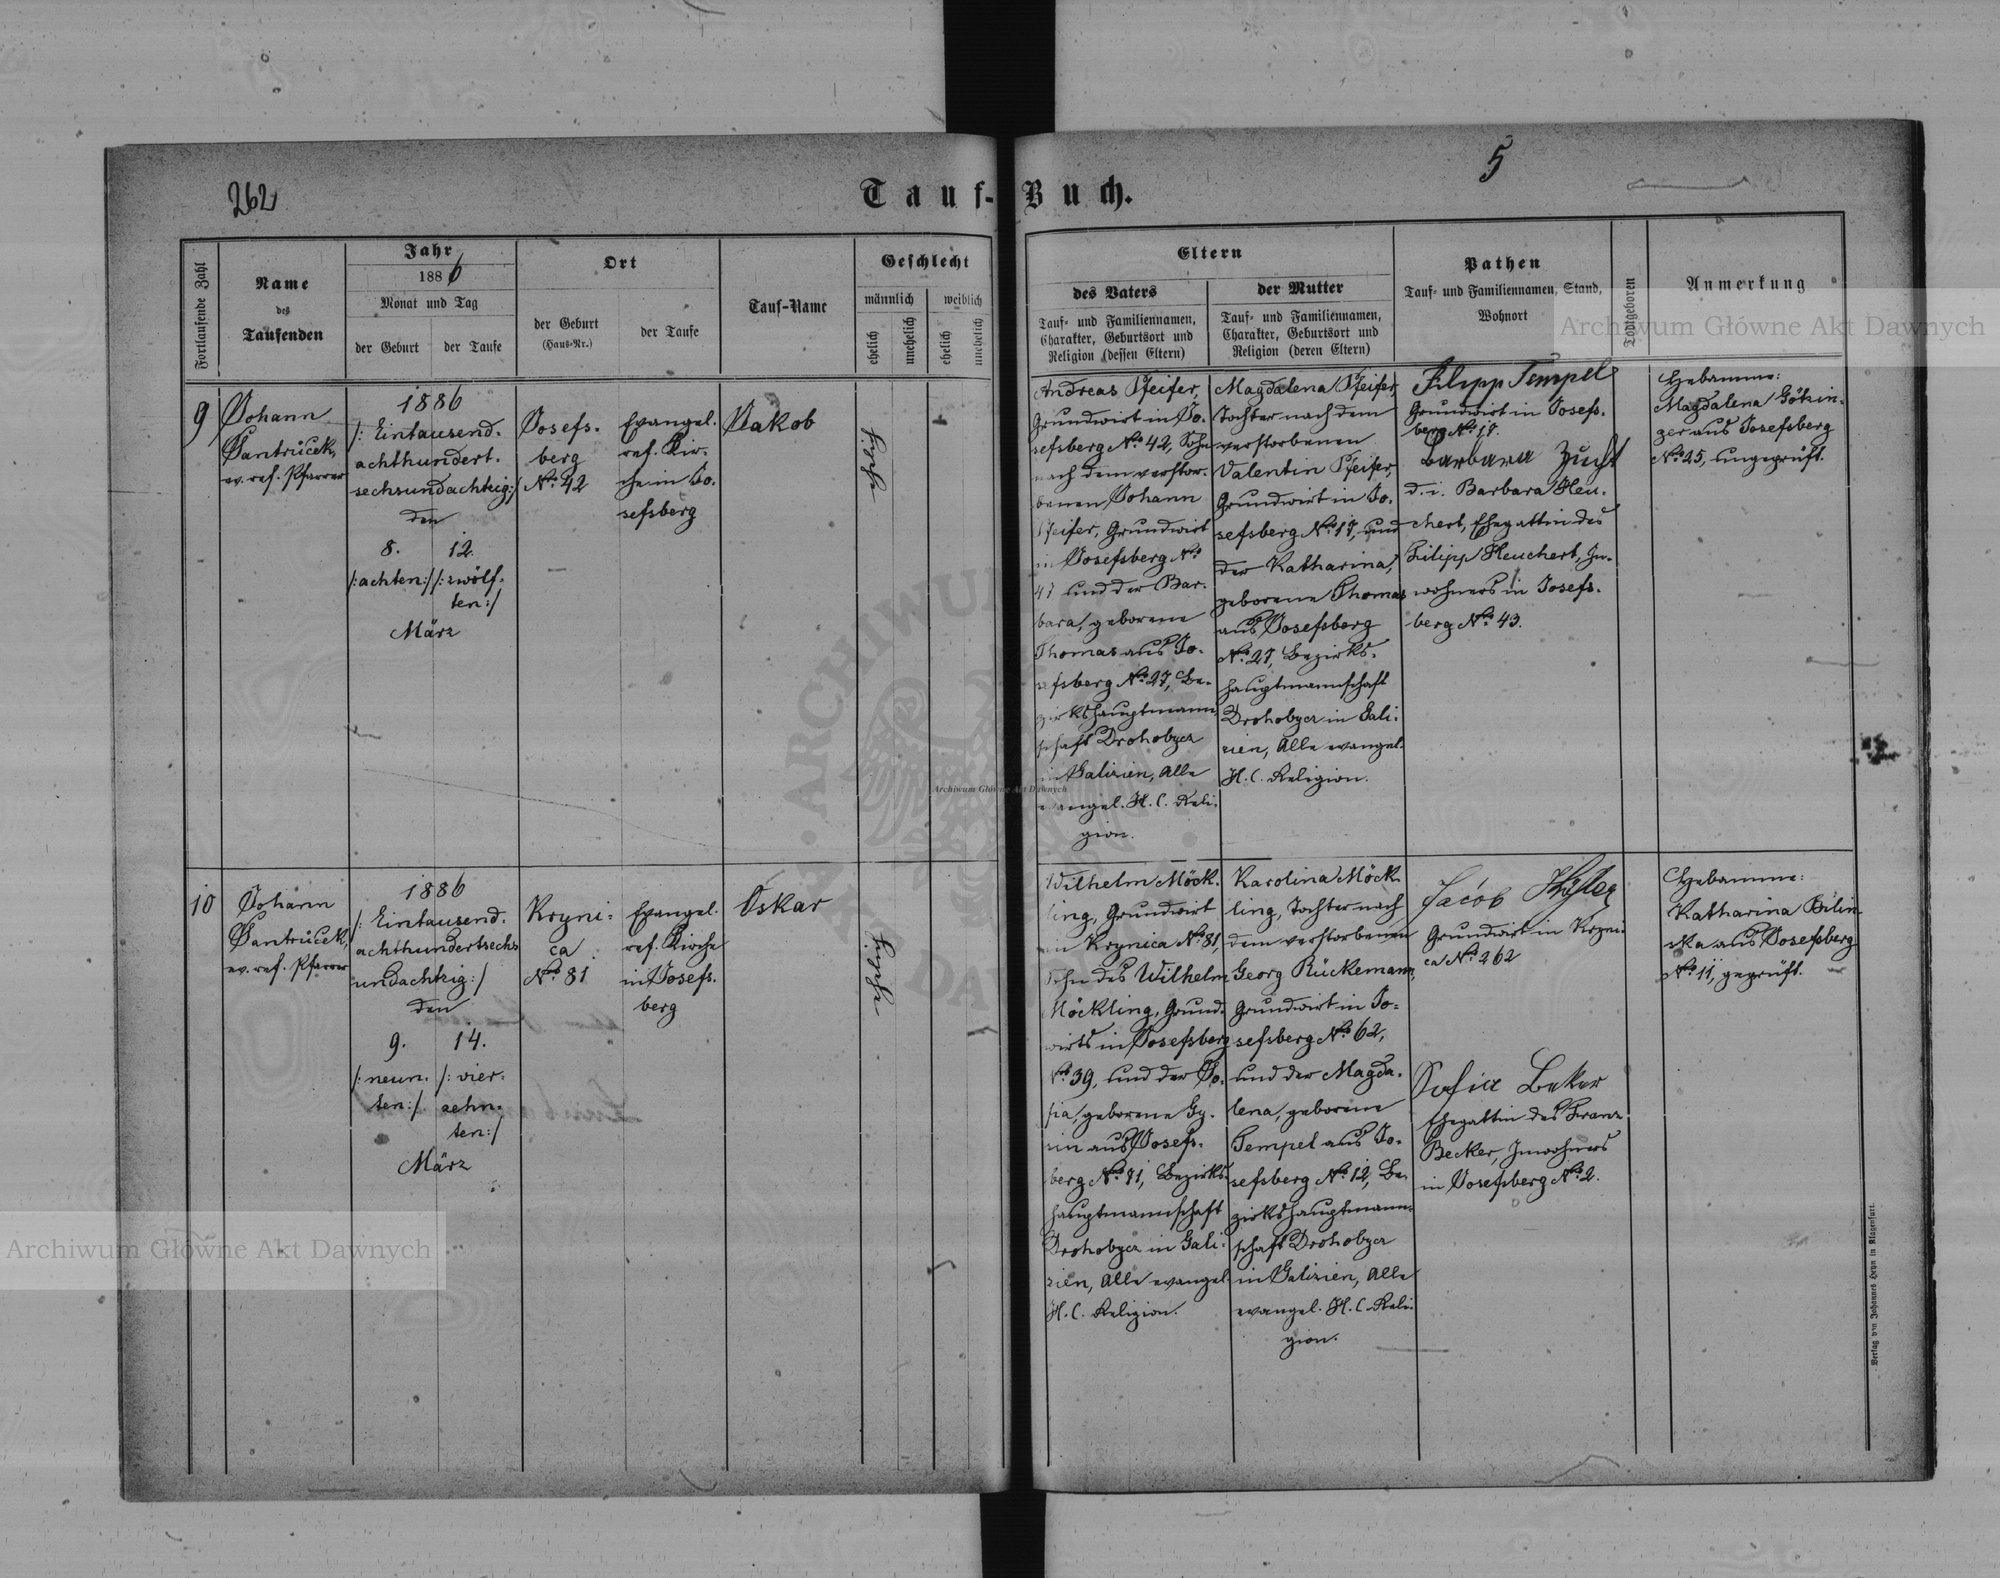 262
5
Tauf-Buch.
Fortlaufende Zahl
Name
des
Taufenden
Jahr
1886
Monat und Tag
der Geburt
der Taufe
Ort
der Geburt
(Haus-Nr.)
der Taufe
Tauf-Name
Geschlecht
männlich
weiblich
ehelich
unehelich
ehelich
unehelich
Eltern
des Vaters
Tauf- und Familiennamen,
Charakter, Geburtsort und
Religion (dessen Eltern)
der Mutter
Tauf- und Familiennamen,
Charakter, Geburtsort und
Religion (deren Eltern)
Pathen
Tauf- und Familiennamen, Stand,
Wohnort
Todtgeboren
Anmerkung
9
Johann
Šantrůček,
ev. ref. Pfarrer
1886
/: Eintausend-
achthundert-
sechsundachtzig :/
den
8.
/: achten :/
12.
/: zwölf-
ten :/
März
Josefs-
berg
No. 42
Evangel.
ref. Kir-
che in Jo-
sefsberg
Jakob
Andreas Pfeifer,
Grundwirt in Jo-
sefsberg No. 42, Sohn
nach dem verstor-
benen Johann
Pfeifer, Grundwirt
in Josefsberg No.
und der Bar-
bara, geborene
Thomas aus Jo-
sefsberg No. 27, Be-
zirkshauptmann-
schaft Drohobycz
in Galizien, Alle
evangel. H. C. Reli-
gion.
Magdalena Pfeifer,
Tochter nach dem
verstorbenen
Valentin Pfeifer,
Grundwirt in Jo-
sefsberg No. 17, und
der Katharina,
geborene Thomas
aus Josefsberg
No. 27, Bezirks-
hauptmannschaft
Drohobycz in Gali-
zien, Alle evangel.
H. C. Religion.
Filipp Tempel
Grundwirt in Josefs-
berg No. 17.
Barbara
d. i. Barbara Heu-
chert, Ehegattin des
Filipp Heuchert, In-
wohners in Josefs-
berg No. 43.
Hebamme:
Magdalena Götzin-
ger aus Josefsberg
No. 25, ungeprüft.
10
Johann
Šantrůček,
ev. ref. Pfarrer
1886
/: Eintausend-
achthundertsechs
undachtzig :/
den
9.
/: neun-
ten :/
14.
/: vier-
zehn-
ten :/
März
Kryni-
ca
No. 81
Evangel.
ref. Kirche
in Josefs-
berg
Oskar
Wilhelm Möck-
ling, Grundwirt
in Krynica No. 81,
Sohn des Wilhelm
Möckling, Grund-
wirts in Josefsberg
No. 39, und der So-
fia, geborene
aus Josefs-
berg No. 81, Bezirks-
hauptmannschaft
Drohobycz in Gali-
zien, Alle evangel.
H. C. Religion.
Karolina Möck-
ling, Tochter nach
dem verstorbenen
Georg Rückemann,
Grundwirt in Jo-
sefsberg No. 62,
und der Magda-
lena, geborene
Tempel aus Jo-
sefsberg No. 12, Be-
zirkshauptmann-
schaft Drohobycz
in Galizien, Alle
evangel. H. C. Reli-
gion.
Jacob
Grundwirt in Kryni-
ca No. 262
Sofia Beker
Ehegattin des Franz
Becker, Inwohners
in Josefsberg No. 2.
Hebamme:
Katharina Bilin-
ska aus Josefsberg
No. 11, geprüft.
Verlag von Johannes Heyn in Klagenfurt.
Archiwum Główne Akt Dawnych
Archiwum Główne Akt Dawnych
Archiwum Główne Akt Dawnych